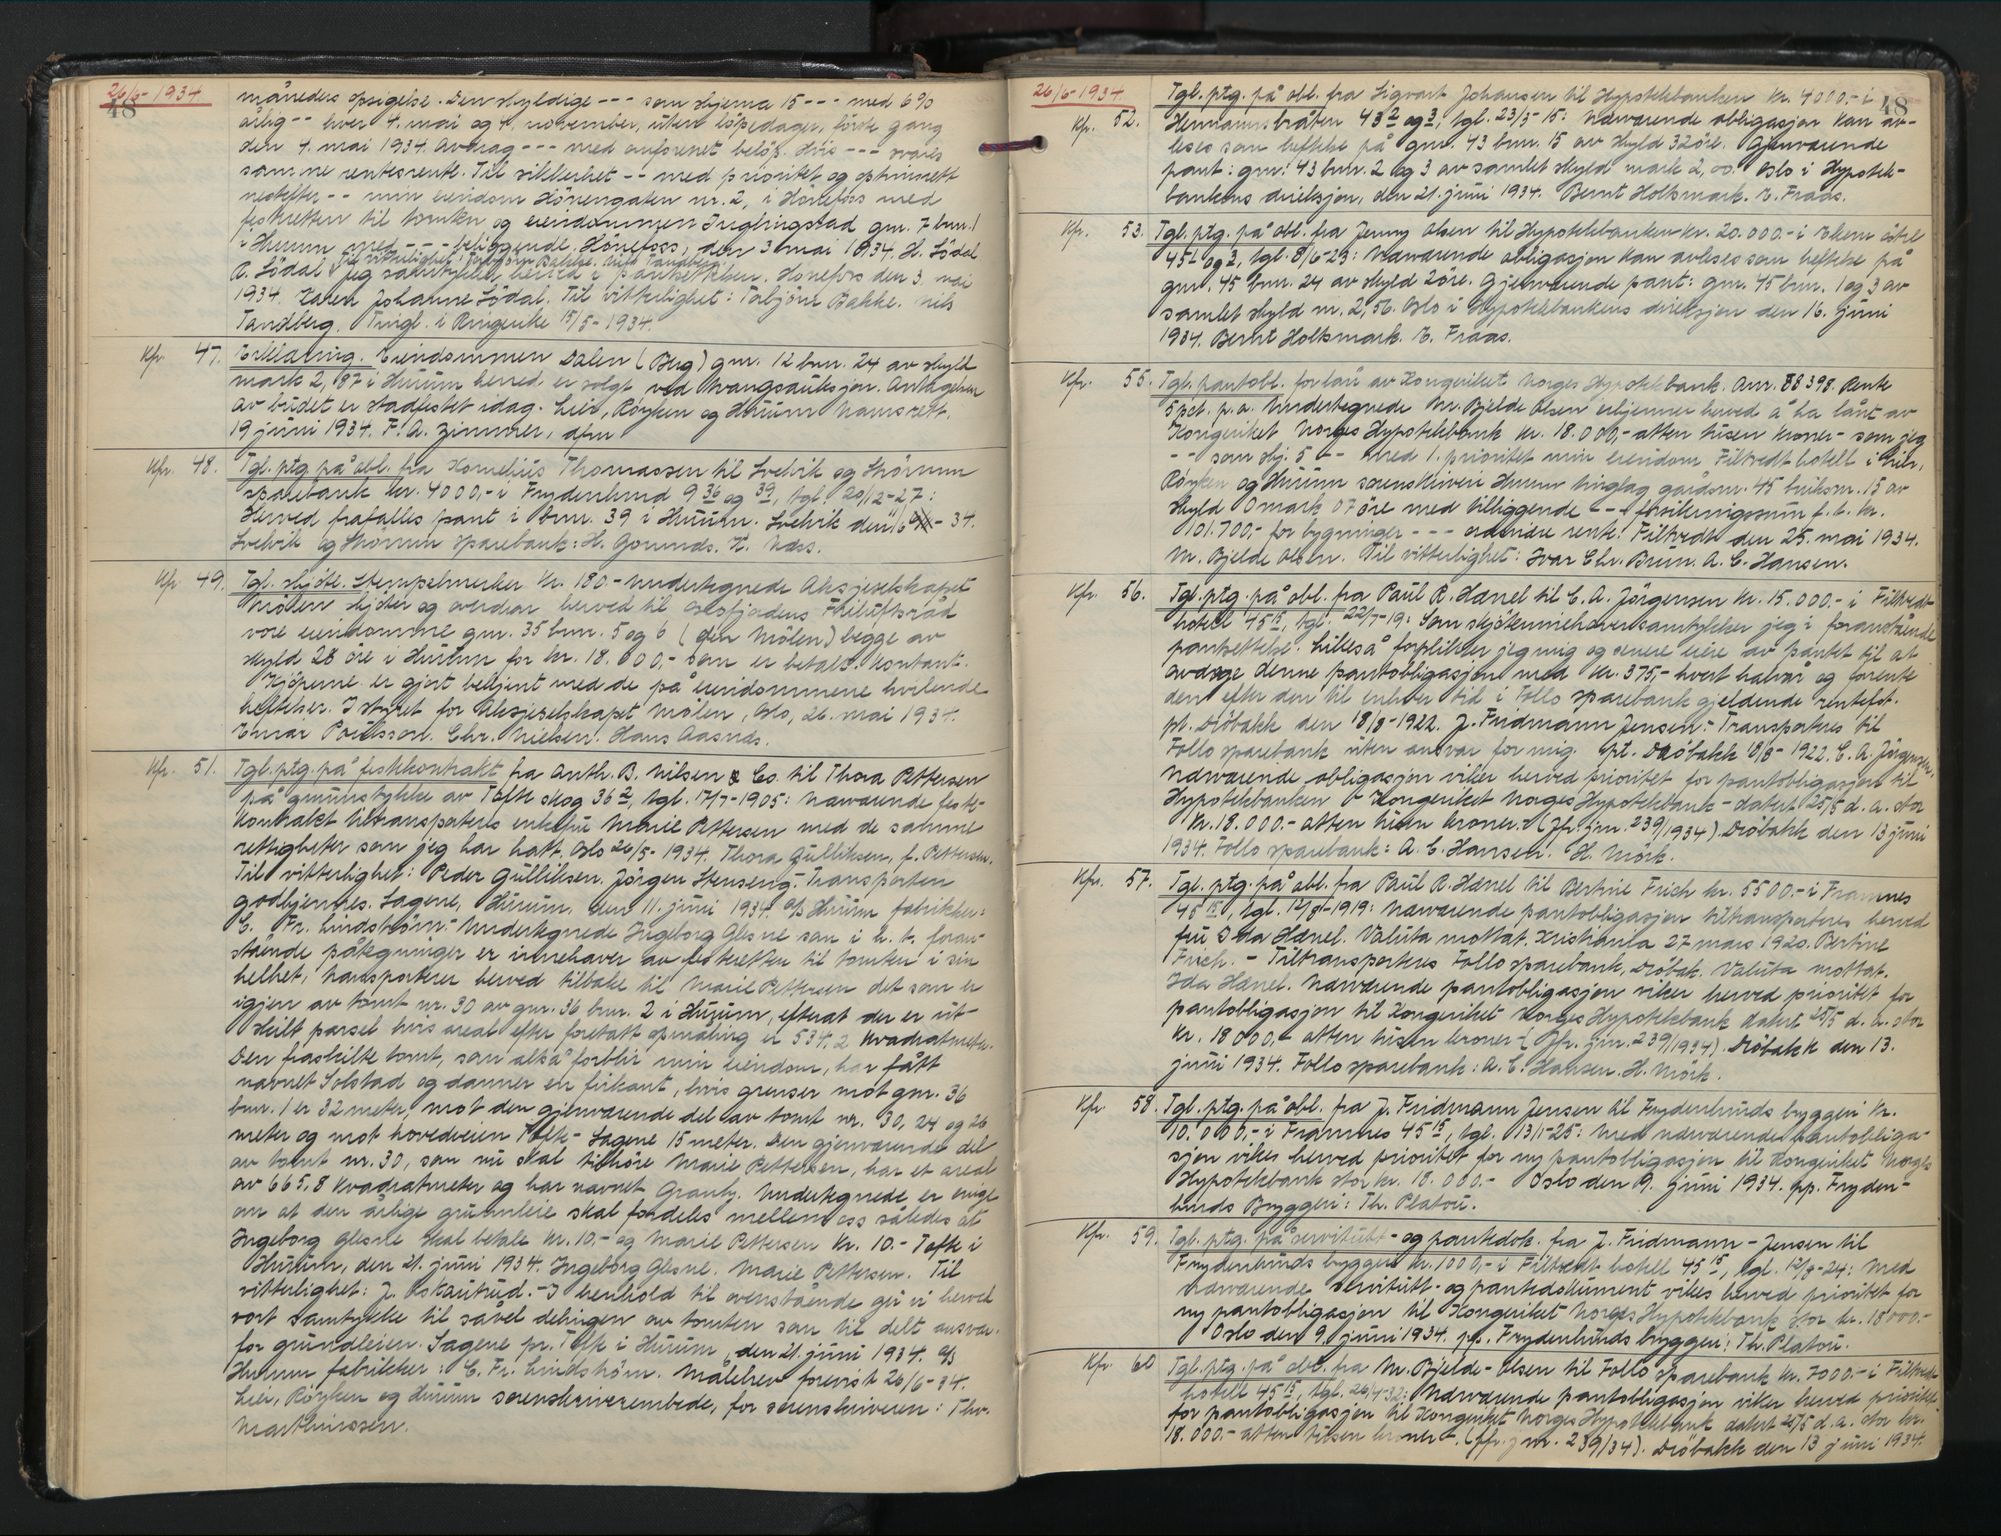 26/6-1934.
48
måneders opsigelse. Den skyldige --- som skjema 15 --- med 6%
årlig -- hver 4. mai og 4. november, uten löpedager, förste gang
den 4. mai 1934. Avdrag --- med anförenet belöp. Hvis --- svares
samme rentesrente. Til sikkerhet -- med prioritet og optrinnsrett
nestefter -- min eiendom Hönengaten nr. 2, i Hönefoss med
festeretten til tomten og eiendommen Inglingstad gnr. 7 bnr. 1
i Hurum med --- beliggende. Hönefoss, den 3 mai 1934. H. Södal
Til vitterlighet: Torbjörn Bakke. Nils Tandberg.
R. Södal. Jeg samtykker herved i pantsettelsen. Hönefoss den 3. mai
1934. Karen Johanne Södal. Til vitterlighet: Torbjörn Bakke. Nils
Tandberg. Tingl. i Ringerike 15/5-1934.
Kfr. 47. Erklæring. Eiendommen Dalen (Berg) gnr. 12 bnr. 24 av skyld
mark 2,87 i Hurum herred er solgt ved tvangsauksjon. Antagelsen
av budet er stadfestet idag. Lier, Röyken og Hurum namsrett,
19 juni 1934. F. A. Zimmer, dfm
Kfr. 48. Tgl. ptg. på obl. fra Kornelius Thomassen til Svelvik og Strömm
sparebank kr. 4000,- i Frydenlund 9 36 og 39, tgl. 20/12-27:
Herved frafalles pant i bnr. 39 i Hurum. Svelvik den 11/6-34.
Svelvik og Strömm sparebank: H. Gorunds. K. Næss.
Kfr. 49. Tgl. skjöte. Stempelmerker kr. 180.- Undertegnede Aksjeselskapet
Mölen skjöter og overdrar herved til Oslofjordens Friluftsråd
vore eiendomme gnr. 35 bnr. 5 og 6 (öen Mölen) begge av
skyld 28 öre i Hurum for kr. 18.000,- som er betalt kontant.
Kjöperne er gjort bekjent med de på eiendommene hvilende
heftelser. I styret for Aksjeselskapet Mölen, Oslo, 26. mai 1934.
Einar Poulsson. Chr. Nielsen. Hans Aasnæs.
Kfr. 51. Tgl. ptg. på festekontrakt fra Anth. B. Nilsen & Co. til Thora Pettersen
på grunnstykke av Tofte skog 36 2, tgl. 17/7-1905: Nærværende feste-
kontrakt tiltransporteres enkefru Marie Pettersen med de samme
rettigheter som jeg har hatt. Oslo 26/5-1934. Thora Gulliksen, f. Pettersen.
Til vitterlighet: Peder Gulliksen. Jörgen Stenseng. Transporten
godkjennes. Sagene, Hurum, den 11. juni 1934. a/s Hurum fabrikker:
C. Fr. Lindström. Undertegnede Ingeborg Glesne som i h. t. foran-
stående påtegninger er innehaver av festeretten til tomten i sin
helhet, transporterer herved tilbake til Marie Pettersen det som er
igjen av tomt nr. 30 av gnr. 36 bnr. 2 i Hurum, efterat der er ut-
skilt parsel hvis areal efter foretatt opmåling er 534,2 kvadratmeter.
Den fraskilte tomt, som altså forblir min eiendom, har fått
navnet Solstad og danner en firkant, hvis grenser mot gnr. 36
bnr. 1 er 32 meter, mot den gjenværende del av tomt nr. 30, 24 og 26
meter og mot hovedveien Tofte-Sagene 15 meter. Den gjenværende del
av tomt nr. 30, som nu skal tilhöre Marie Pettersen, har et areal
av 665,8 kvadratmeter og har navnet Granly. Undertegnede er enige
om at den årlige grunnleie skal fordeles mellem oss således at
Ingeborg Glesne skal betale kr. 10,- og Marie Pettersen kr. 10.- Tofte i
Hurum, den 21. juni 1934. Ingeborg Glesne. Marie Pettersen. Til
vitterlighet: J. Askautrud. - I henhold til ovenstående gir vi herved
vort samtykke til såvel delingen av tomten som til delt ansvar
for grunnleien. Sagene pr. Tofte i Hurum, den 21. juni 1934. a/s
Hurum fabrikker: C. Fr. Lindström. Målebrev forevist 26/6-34.
Lier, Röyken og Hurum sorenskriverembede, for sorenskriveren: Thv.
Marthinssen.
26/6-1934.
48
Kfr. 52. Tgl. ptg. på obl. fra Sigvart Johansen til Hypotekbanken kr. 4000.- i
Hermannsbråten 43 2 og 3, tgl. 23/3-15: Nærværende obligasjon kan av-
leses som heftelse på gnr. 43 bnr. 15 av skyld 32 öre. Gjenværende
pant: gnr. 43 bnr. 2 og 3 av samlet skyld mark 2,00. Oslo i Hypotek-
bankens direksjon, den 21. juni 1934. Bernt Holtsmark. E. Fraas.
Kfr. 53. Tgl. ptg. på obl. fra Jenny Olsen til Hypotekbanken kr. 20.000.- i Ekern östre
45 1 og 3, tgl. 8/6-23: Nærværende obligasjon kan avleses som heftelse på
gnr. 45 bnr. 24 av skyld 2 öre. Gjenværende pant: gnr. 45 bnr. 1 og 3 av
samlet skyld m. 2,56. Oslo i Hypotekbankens direksjon den 16. juni
1934. Bernt Holtsmark. E. Fraas.
Kfr. 55. Tgl. pantobl. for lån av Kongeriket Norges Hypotekbank. Anr. 88398. Rente
5 pct. p. a. Undertegnede M. Bjelde Olsen erkjenner herved å ha lånt av
Kongeriket Norges Hypotekbank kr. 18.000,- atten tusen kroner- som jeg
-- som skj. 5 -- med 1. prioritet min eiendom Filtvedt hotell i Lier,
Röyken og Hurum sorenskriveri Hurum tinglag gårdsnr. 45 bruksnr. 15 av
skyld 0 mark 07 öre med tilliggende --- forsikringssum f. t. kr.
101.700,- for bygninger --- ordinære rente. Filtvedt den 25. mai 1934.
M. Bjelde Olsen. Til vitterlighet: Ivar Chr. Bruun. A. C. Hansen.
Kfr. 56. Tgl. ptg. på obl. fra Paul R. Hænel til C. A. Jörgensen kr. 15.000.- i Filtvedt
hotell 45 15, tgl. 22/7-19: Som skjöteinnehaver samtykker jeg i foranstående
pantsettelse. Likeså forplikter jeg mig og senere eiere av pantet til at
avdrage denne pantobligasjon med kr. 375,- hvert halvår og forrente
den efter den til enhver tid i Follo sparebank gjeldende rentefot.
pt. Dröbakk den 18/8-1922. J. Fridmann Jensen. - Transporteres til
Follo sparebank uten ansvar for mig. pt. Dröbakk 18/8-1922. C. A. Jörgensen.
Nærværende obligasjon viker herved prioritet for pantobligasjon til
Hypotekbanken - Kongeriket Norges Hypotekbank - datert 25/5 d. a. stor
kr. 18.000.- atten tusen kroner. - (Jfr. jnr. 239/1934). Dröbakk den 13 juni
1934. Follo sparebank: A. C. Hansen. H. Mörk.
Kfr. 57. Tgl. ptg. på obl. fra Paul R. Hænel til Bertine Frich kr. 5500.- i Framnes
45 15, tgl. 12/8-1919: Nærværende pantobligasjon tiltransporteres herved
fru Ida Hænel. Valuta mottat. Kristiania 27 mars 1920. Bertine
Frich. - Tiltransporteres Follo sparebank, Dröbak. Valuta mottat.
Ida Hænel. Nærværende pantobligasjon viker herved prioritet for
pantobligasjon til Kongeriket Norges Hypotekbank datert 25/5 d. a. stor
kr. 18000,- atten tusen kroner- (Jfr. jnr. 239/1934). Dröbakk den 13.
juni 1934. Follo sparebank: A. C. Hansen. H. Mörk.
Kfr. 58. Tgl. ptg. på obl. fra J. Fridmann Jensen til Frydenlunds bryggeri kr.
10.000.- i Framnes 45 15, tgl. 13/1-25: Med nærværende pantobliga-
sjon vikes herved prioritet for ny pantobligasjon til Kongeriket Norges
Hypotekbank stor kr. 18.000.- Oslo den 9. juni 1934. pp. Fryden-
lunds Bryggeri: Th. Platou.
Kfr. 59. Tgl. ptg. på servitutt- og pantedok. fra J. Fridmann-Jensen til
Frydenlunds bryggeri kr. 1000,- i Filtvedt hotell 45 15, tgl. 12/8-24: Med
nærværende servitutt- og pantedokument vikes herved prioritet for
ny pantobligasjon til Kongeriket Norges Hypotekbank stor kr. 18000.-
Oslo den 9. juni 1934. pp. Frydenlunds bryggeri: Th. Platou.
Kfr. 60 Tgl. ptg. på obl. fra M. Bjelde-Olsen til Follo sparebank kr. 7000.- i Filtvedt
hotell 45 15, tgl. 26/4-32: Nærværende pantobligasjon viker herved prioritet
for pantobligasjon til Kongeriket Norges Hypotekbank datert 25/5 d. a. stor kr.
18.000.- atten tusen kroner -. (Jfr. jnr. 239/34). Dröbakk den 13 juni 1934.